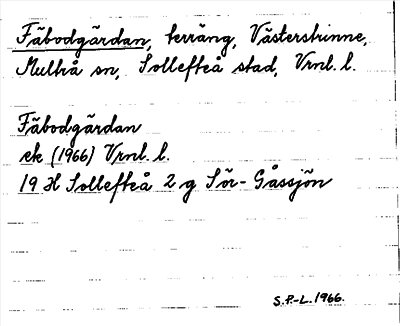 Fäbodgårdan, terräng, Västerstrinne,
Multrå sn, Sollefteå stad, Vrnl. l.
Fäbodgårdan
ek (1966) Vrnl. l.
19 H Sollefteå 2 g Sör-Gåssjön
S.P-L. 1966.